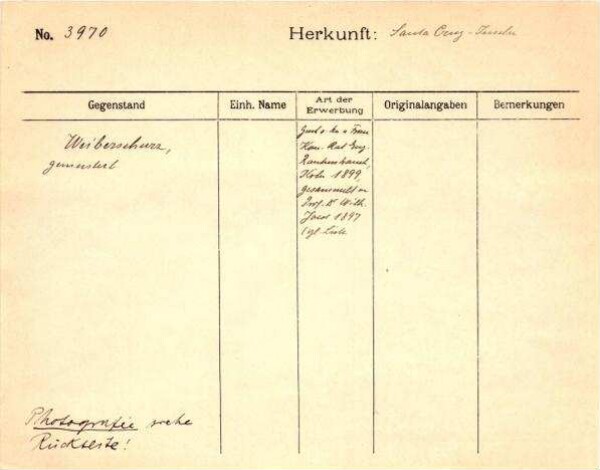 No. 3970
Herkunft: Santa Cruz-Inseln
Gegenstand
Einh. Name
Art der Erwerbung
Originalangaben
Bemerkungen
Weiberschurz,
gemustert
Frau
Rautenstrauch,
Köln 1899,
gesammelt v.
Prof. Dr Wilh.
Joest 1897
Liste
Photografie siehe
Rückseite!